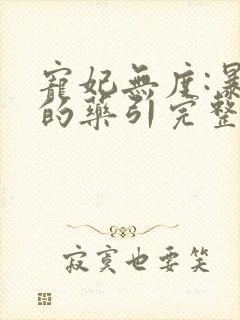 寵妃無度:暴
的藥引完整
寂寞也要笑